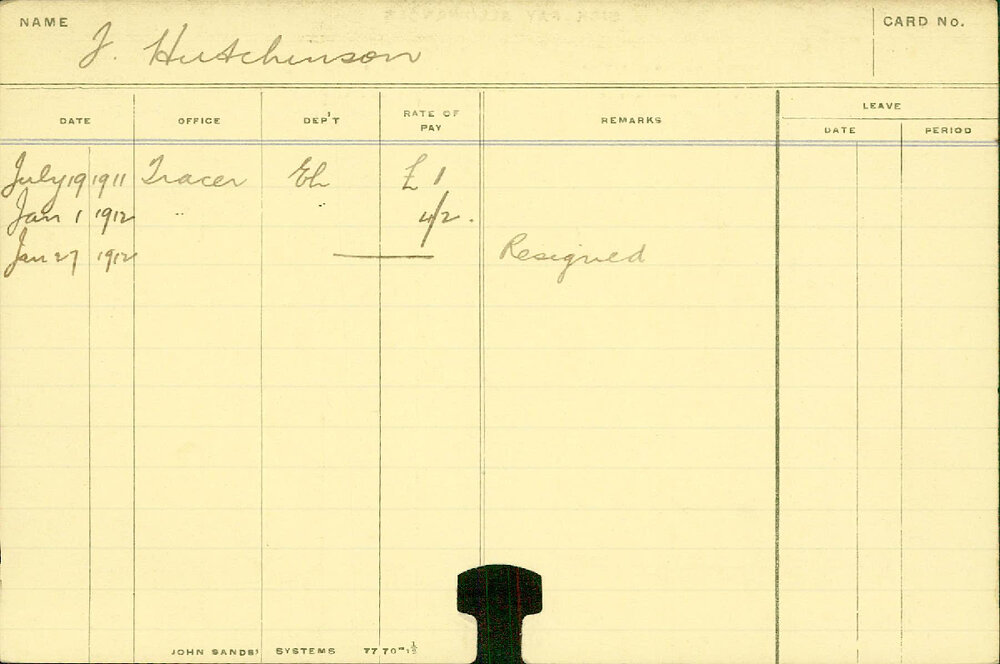 NAME J. Hutchinson CARD No.
DATE OFFICE DEP'T RATE OF PAY REMARKS LEAVE
DATE PERIOD
July 19 1911 Tracer £ 1
Jan 1 1912 " " 4/2.
Jan 27 1912 Resigned
JOHN SANDS' SYSTEMS